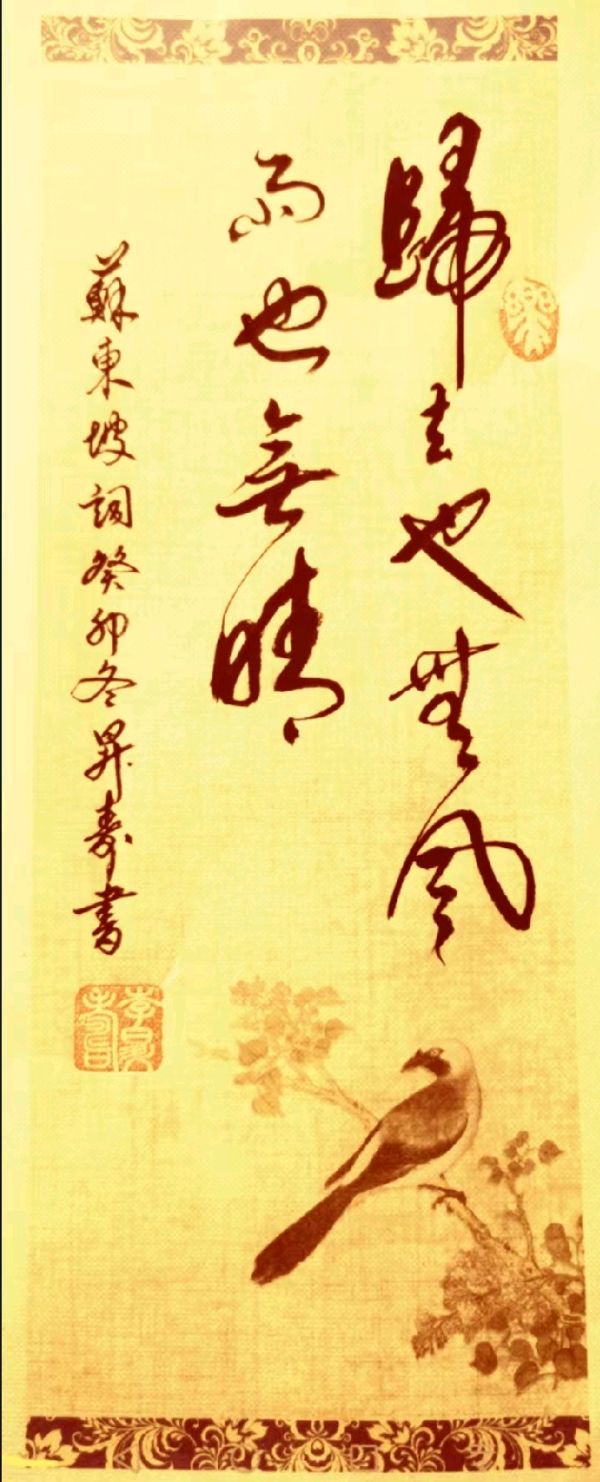 歸去也無風
雨也無晴
蘇東坡詞癸卯冬昇壽書